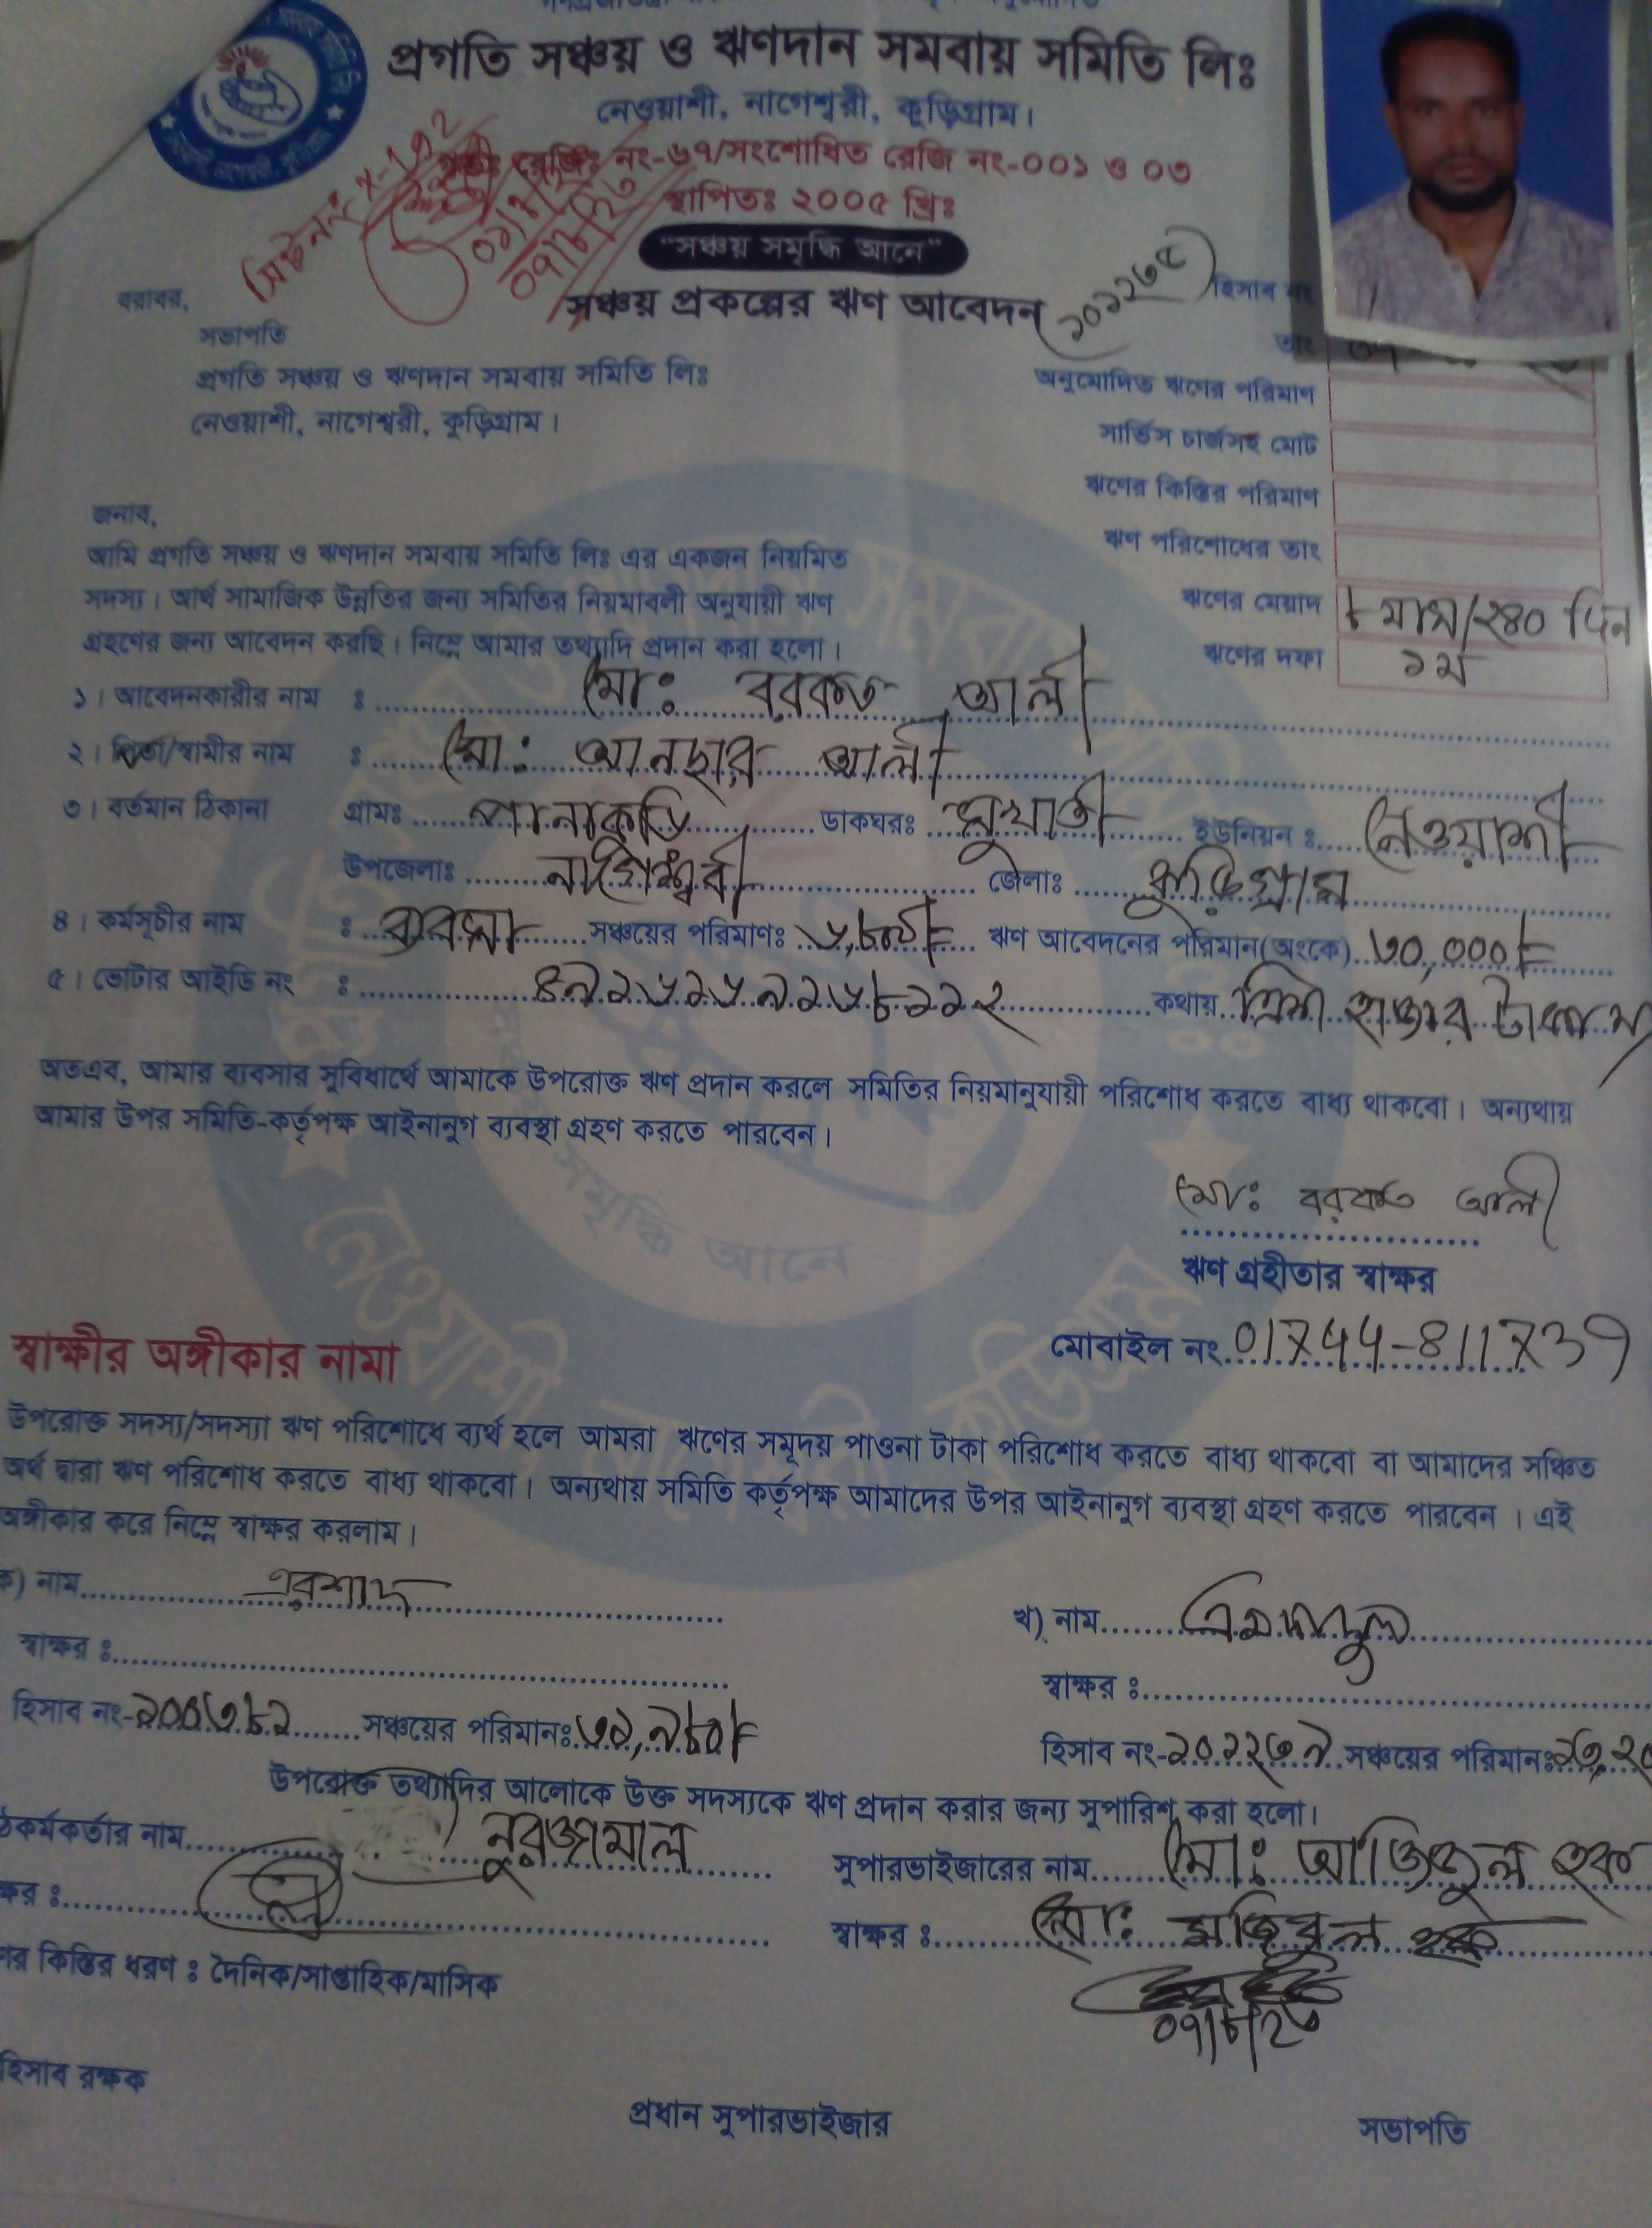 প্রগতি সঞ্চয় ও ঋণদান সমবায় সমিতি লিঃ
নেওয়াশী, নাগেশ্বরী, কুড়িগ্রাম।
রেজিঃ নং-৬৭/সংশোধিত রেজি নং-০০১ ও ০৩
স্থাপিতঃ ২০০৫ খ্রিঃ
"সঞ্চয় সমৃদ্ধি আনে"
সঞ্চয় প্রকল্পের ঋণ আবেদন
১০১২৬৫
হিসাব নং
তাং
বরাবর,
সভাপতি
প্রগতি সঞ্চয় ও ঋণদান সমবায় সমিতি লিঃ
নেওয়াশী, নাগেশ্বরী, কুড়িগ্রাম।
অনুমোদিত ঋণের পরিমাণ
সার্ভিস চার্জসহ মোট
ঋণের কিস্তির পরিমাণ
ঋণ পরিশোধের তাং
ঋণের মেয়াদ ৮ মাস/২৪০ দিন
ঋণের দফা ১ম
জনাব,
আমি প্রগতি সঞ্চয় ও ঋণদান সমবায় সমিতি লিঃ এর একজন নিয়মিত
সদস্য। আর্থ সামাজিক উন্নতির জন্য সমিতির নিয়মাবলী অনুযায়ী ঋণ
গ্রহণের জন্য আবেদন করছি। নিম্নে আমার তথ্যাদি প্রদান করা হলো।
১। আবেদনকারীর নাম : মোঃ বরকত আলী
২। পিতা/স্বামীর নাম : মোঃ আনছার আলী
৩। বর্তমান ঠিকানা গ্রামঃ পানাকুড়ি ডাকঘরঃ সুখাতী ইউনিয়ন : নেওয়াশী
উপজেলাঃ নাগেশ্বরী জেলাঃ কুড়িগ্রাম
৪। কর্মসূচীর নাম : ব্যবসা সঞ্চয়ের পরিমাণঃ ঋণ আবেদনের পরিমান(অংকে) ৩০,০০০/-
৫। ভোটার আইডি নং : ৪৯১৬১৬৯১৬৮১১২ কথায় ত্রিশ হাজার টাকা মাত্র
অতএব, আমার ব্যবসার সুবিধার্থে আমাকে উপরোক্ত ঋণ প্রদান করলে সমিতির নিয়মানুযায়ী পরিশোধ করতে বাধ্য থাকবো। অন্যথায়
আমার উপর সমিতি-কর্তৃপক্ষ আইনানুগ ব্যবস্থা গ্রহণ করতে পারবেন।
মোঃ বরকত আলী
ঋণ গ্রহীতার স্বাক্ষর
মোবাইল নং 01744-811739
স্বাক্ষীর অঙ্গীকার নামা
উপরোক্ত সদস্য/সদস্যা ঋণ পরিশোধে ব্যর্থ হলে আমরা ঋণের সমূদয় পাওনা টাকা পরিশোধ করতে বাধ্য থাকবো বা আমাদের সঞ্চিত
অর্থ দ্বারা ঋণ পরিশোধ করতে বাধ্য থাকবো। অন্যথায় সমিতি কর্তৃপক্ষ আমাদের উপর আইনানুগ ব্যবস্থা গ্রহণ করতে পারবেন। এই
অঙ্গীকার করে নিম্নে স্বাক্ষর করলাম।
ক) নাম এরশাদ
খ) নাম এমদাদুল
স্বাক্ষর :
স্বাক্ষর :
হিসাব নং-১০০৬৩৮১ সঞ্চয়ের পরিমানঃ ৩১,৯৮০/-
হিসাব নং-১০১২৩৯ সঞ্চয়ের পরিমানঃ
উপরোক্ত তথ্যাদির আলোকে উক্ত সদস্যকে ঋণ প্রদান করার জন্য সুপারিশ করা হলো।
ঠকর্মকর্তার নাম নুরজামাল
সুপারভাইজারের নাম মোঃ আজিজুল হক
ক্ষর :
স্বাক্ষর : মোঃ মজিবুল হক
০৭/৮/২৩
ণের কিস্তির ধরণ : দৈনিক/সাপ্তাহিক/মাসিক
হিসাব রক্ষক
প্রধান সুপারভাইজার
সভাপতি